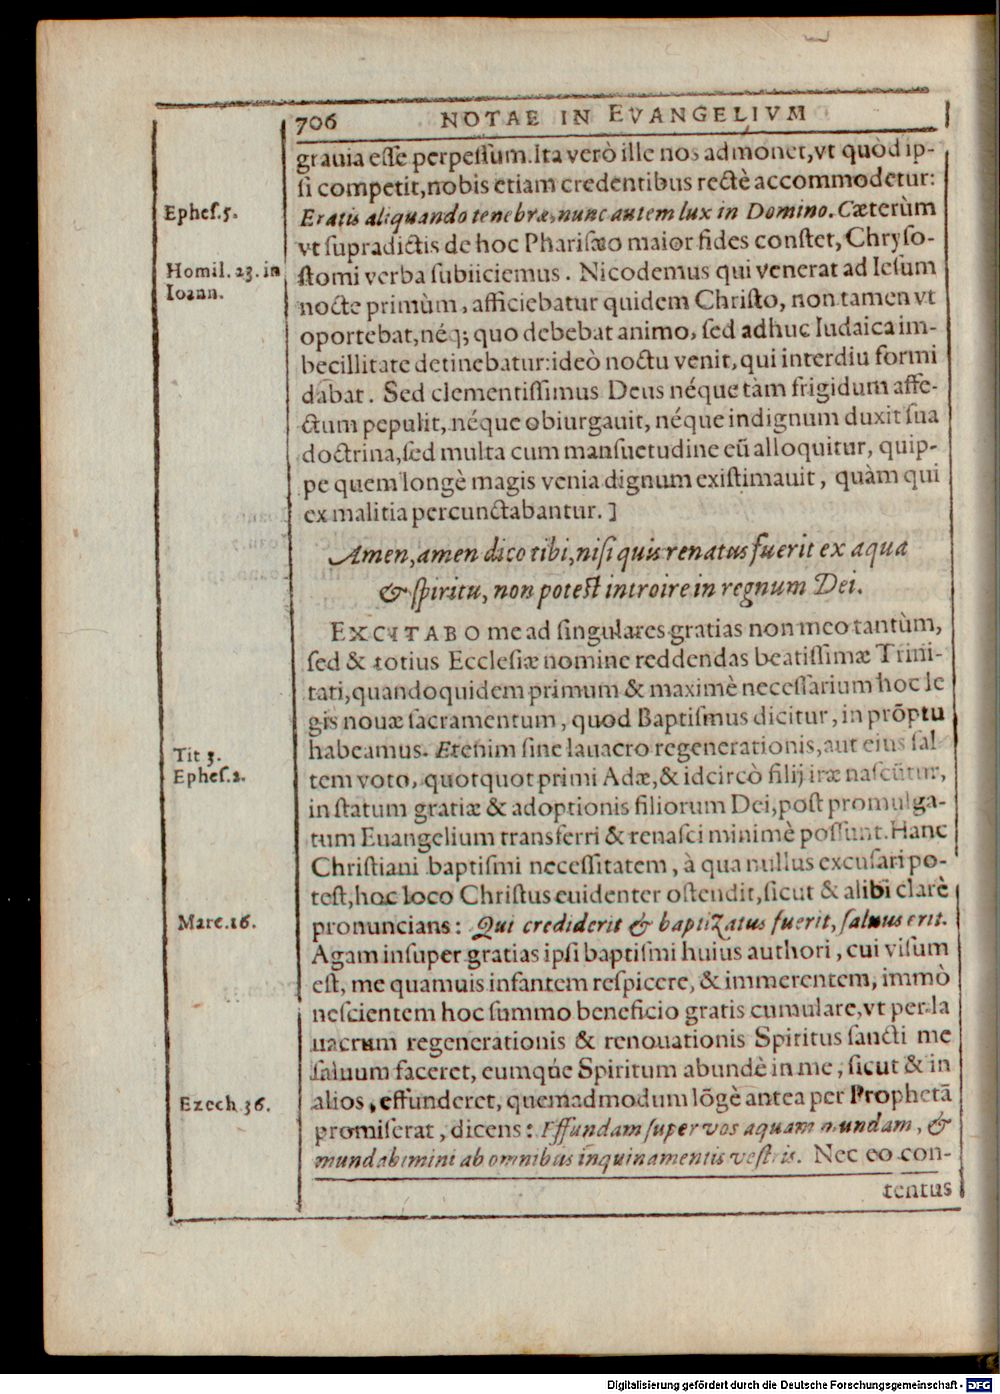 706 NOTAE IN EVANGELIVM
grauia esse perpessum. Ita verò ille nos admonet, vt quòd ip-
si competit, nobis etiam credentibus rectè accommodetur:
Ephes. 5.
Eratis aliquando tenebræ, nunc autem lux in Domino. Cæterùm
vt supradictis de hoc Pharisæo maior fides constet, Chryso-
Homil. 23. in
Ioann.
stomi verba subiiciemus. Nicodemus qui venerat ad Iesum
nocte primùm, afficiebatur quidem Christo, non tamen vt
oportebat, néq; quo debebat animo, sed adhuc Iudaica im-
becillitate detinebatur: ideò noctu venit, qui interdiu formi
dabat. Sed clementissimus Deus néque tàm frigidum affe-
ctum pepulit, néque obiurgauit, néque indignum duxit sua
doctrina, sed multa cum mansuetudine eũ alloquitur, quip-
pe quem longè magis venia dignum existimauit, quàm qui
ex malitia percunctabantur. ]
Amen, amen dico tibi, nisi quis renatus fuerit ex aqua
& spiritu, non potest introire in regnum Dei.
EXCITABO me ad singulares gratias non meo tantùm,
sed & totius Ecclesiæ nomine reddendas beatissimæ Trini-
tati, quandoquidem primum & maximè necessarium hoc le
gis nouæ sacramentum, quod Baptismus dicitur, in prõptu
habeamus. Etenim sine lauacro regenerationis, aut eius sal
Tit 3.
Ephes. 2.
tem voto, quotquot primi Adæ, & idcircò filij iræ nascũtur,
in statum gratiæ & adoptionis filiorum Dei, post promulga-
tum Euangelium transferri & renasci minimè possunt. Hanc
Christiani baptismi necessitatem, à qua nullus excusari po-
test, hoc loco Christus euidenter ostendit, sicut & alibi clarè
Marc. 16.
pronuncians: Qui crediderit & baptizatus fuerit, saluus erit.
Agam insuper gratias ipsi baptismi huius authori, cui visum
est, me quamuis infantem respicere, & immerentem, immò
nescientem hoc summo beneficio gratis cumulare, vt per la
uacrum regenerationis & renouationis Spiritus sancti me
saluum faceret, eumqúe Spiritum abundè in me, sicut & in
Ezech. 36.
alios, effunderet, quemadmodum lõgè antea per Prophetã
promiserat, dicens: Effundam super vos aquam mundam, &
mundabimini ab omnibus inquinamentis vestris. Nec eo con-
tentus
Digitalisierung gefördert durch die Deutsche Forschungsgemeinschaft - DFG